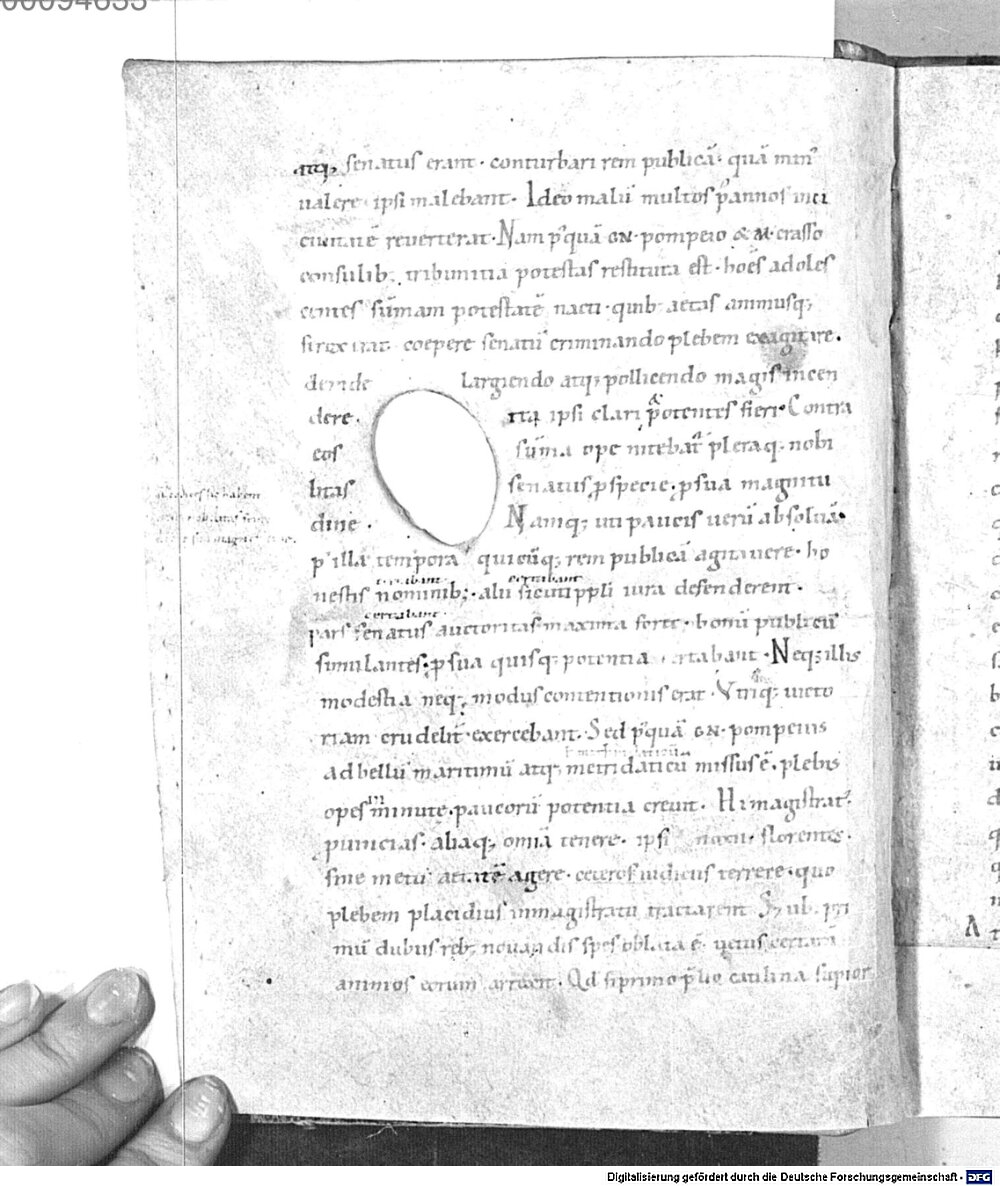 00094635
atq; senatus erant · conturbari rem publicā · quā min᾽
ualere ipsi malebant · Ideo malū multos p̄ annos in ci
ciuitatē reuerterat · Nam p᾽quā GN · pompeio & M · crasso
consulib; tribunitia potestas restituta est · hoēs adoles
centes sūmam potestatē nacti · quib; aetas animusq;
ferox erat coepere senatū criminando plebem exagitare ·
deinde largiendo atq; pollicendo magis incen
dere · ita ipsi clari & potentes fieri · Contra
eos sūma ope nitebat᾽ pleraq; nobi
litas senatus p specie · p sua magnitu
dine · Namq; uti paucis uerū absoluā ·
p᾽ illa tempora quicūq; rem publicā agitauere · ho
nestis nominib; · alii sicuti ppli iura defenderent ·
certabant
pars senatus auctoritas maxima foret · bonū publicū
simulantes · p sua quisq; potentia certabant · Neq; illis
modestia neq; modus contentionis erat · Vtriq; uicto
riam crudelit᾽ exercebant · Sed p᾽quā GN · pompeius
ad bellū maritimū atq; metridaticū missus ē · plebis
opes inminute · paucorū potentia creuit · Hi magistrat᾽
puincias · aliaq; omīa tenere · ipsi innoxii · florentes ·
sine metu aetatē agere · ceteros iudiciis terrere · quo
plebem placidius in magistratu tractarent S; ub. pri
mū dubiis reb; nouandis spes oblata ē · uetus certam̄
animos eorum arrexit · Qd si primo p᾽lio catilina supior
Digitalisierung gefördert durch die Deutsche Forschungsgemeinschaft · DFG